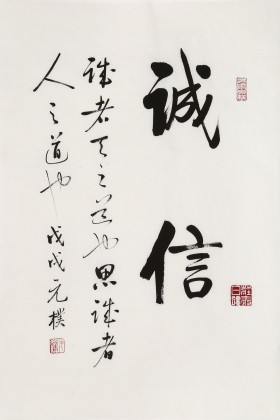 诚信
诚者天之道也思诚者
人之道也 戊戌元樸